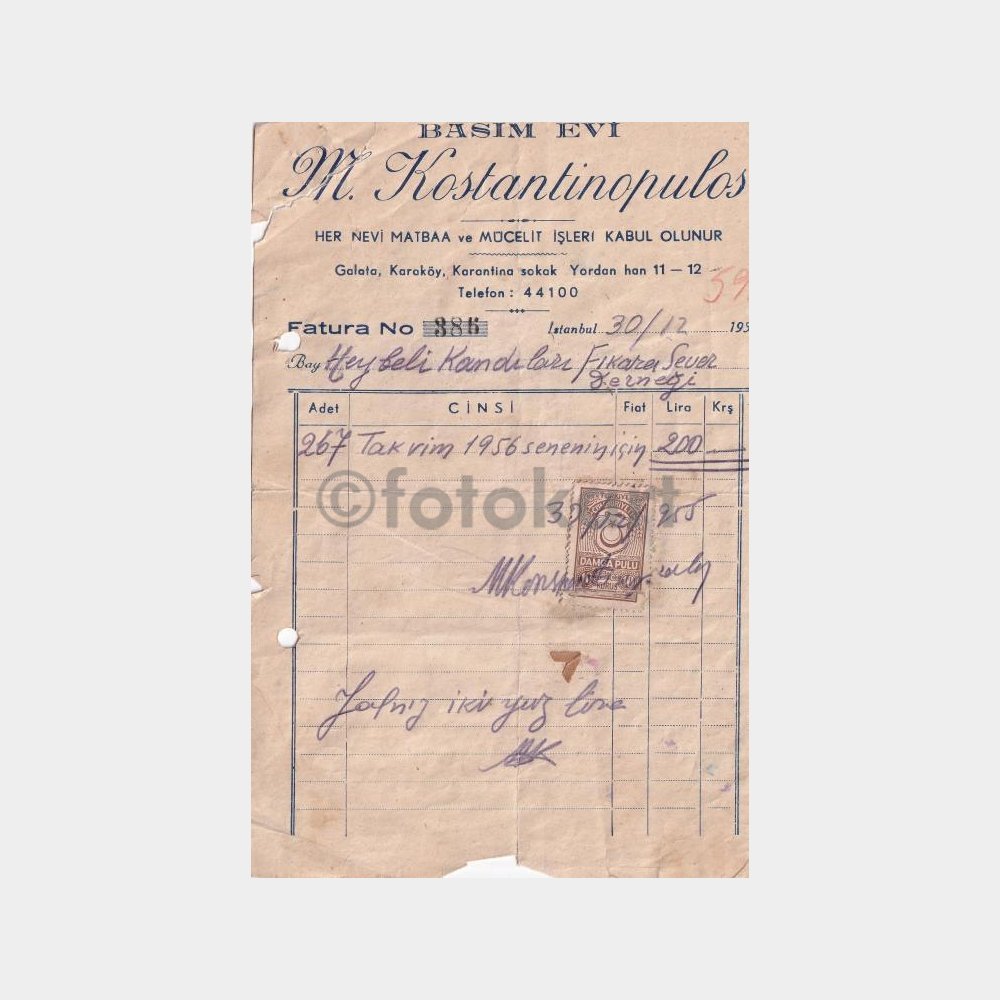 BASIM EVİ
M. Kostantinopulos
HER NEVİ MATBAA ve MÜCELİT İŞLERİ KABUL OLUNUR
Galata, Karaköy, Karantina sokak Yordan han 11 — 12
Telefon : 44100
59
Fatura No 386 İstanbul 30/12 195
Bay Heybeli Kandıları Fıkara Sever
Derneği
Adet CİNSİ Fiat Lira Krş
267 Takvim 1956 senenin için 200 —
©fotokart
30/12/955
DAMGA PULU
Yalnız iki yuz lira
MK